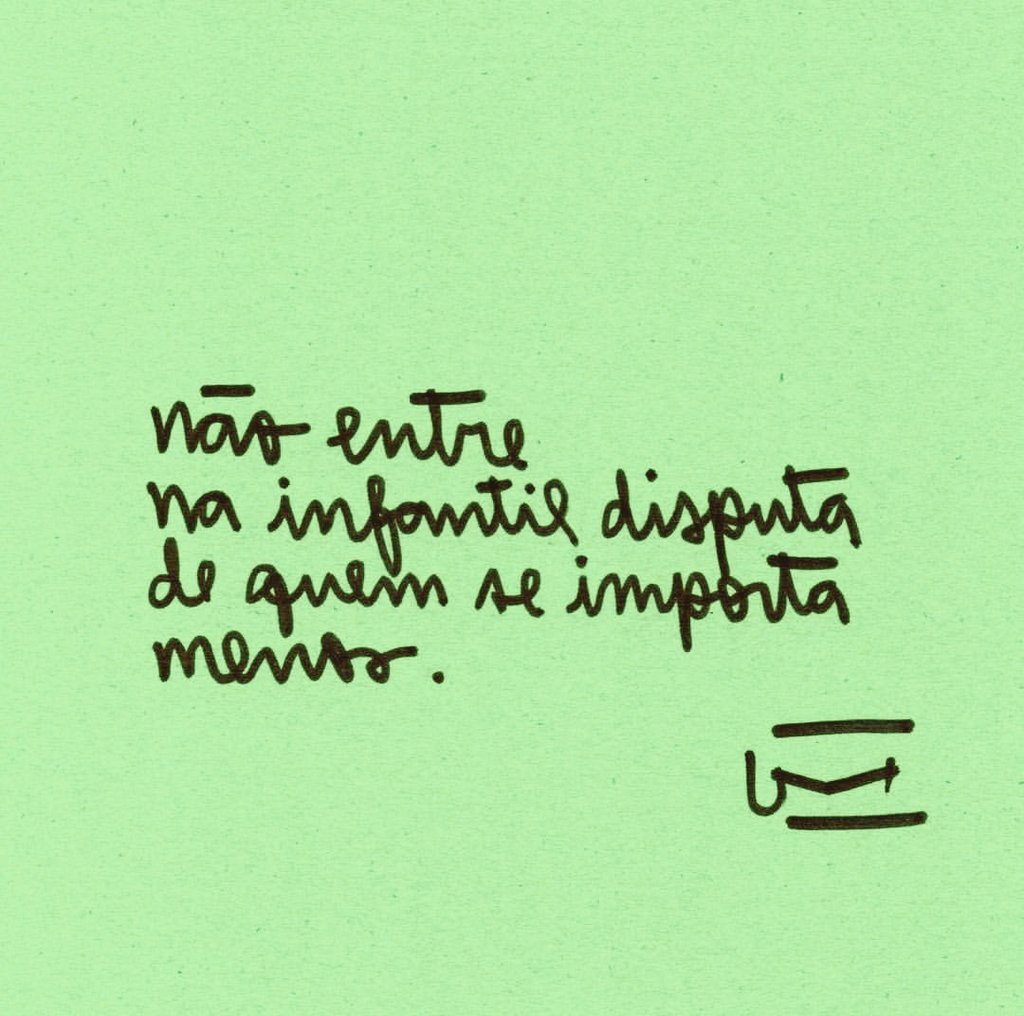 não entre
na infantil disputa
de quem se importa
menos.